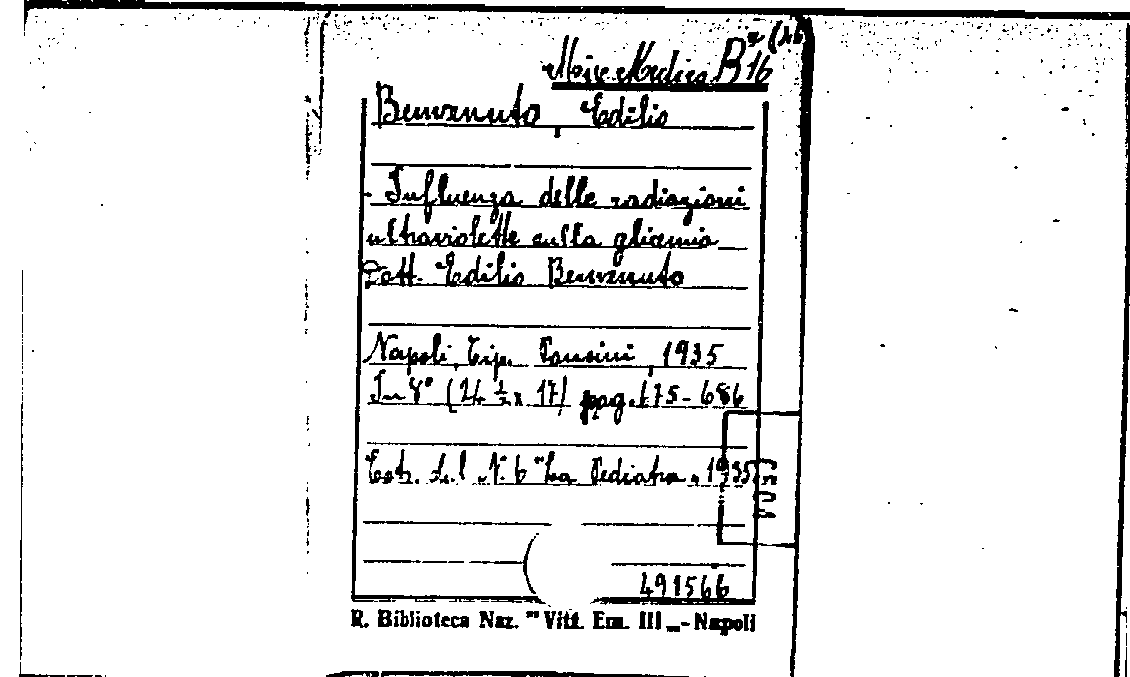 Misc Medica B 16
Benvenuto Edilio
- Influenza delle radiazioni
ultraviolette sulla glicemia
Dott. Edilio Benvenuto
Napoli, Tip. 1935
In 8° (24 ½ x 17) pag. 675-686
Estr. dal N. 6 "La Pediatria" 1935
491566
R. Biblioteca Naz. "Vitt. Em. III„ - Napoli